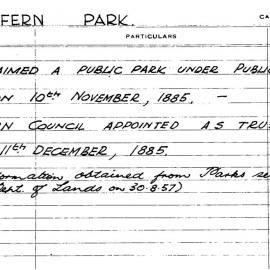 FERN PARK.
CA
PARTICULARS
AIMED A PUBLIC PARK UNDER PUBLIC
ON 10th NOVEMBER, 1885. -
N COUNCIL APPOINTED AS TRUS
11th DECEMBER, 1885.
formation obtained from Parks se
ept. of Lands on 30.8.57)